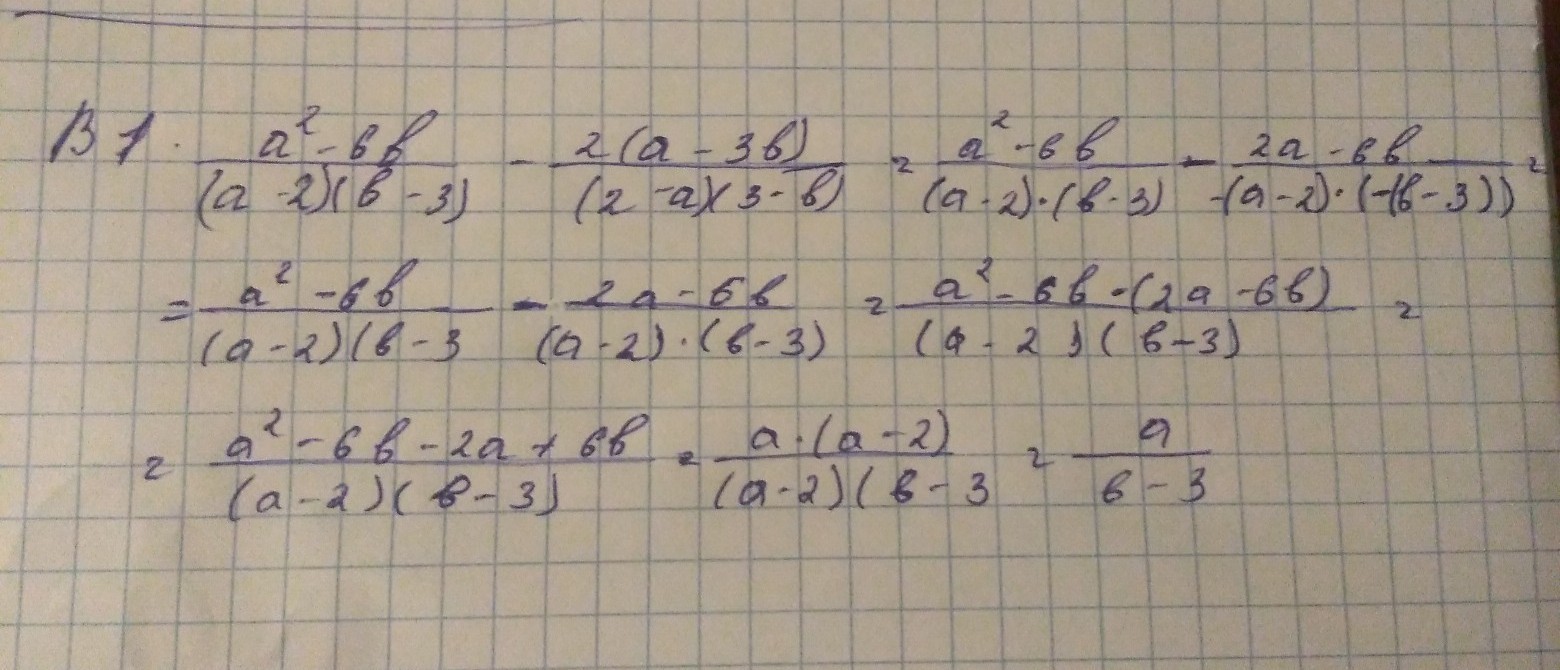 В 1. (a² - 6b)/((a - 2)(b - 3)) - (2(a - 3b))/((2 - a)(3 - b)) = (a² - 6b)/((a - 2)·(b - 3)) - (2a - 6b)/(-(a - 2)·(-(b - 3))) =
= (a² - 6b)/((a - 2)(b - 3) - (2a - 6b)/((a - 2)·(b - 3)) = (a² - 6b - (2a - 6b))/((a - 2)(b - 3)) =
= (a² - 6b - 2a + 6b)/((a - 2)(b - 3)) = (a·(a - 2))/((a - 2)(b - 3) = a/(b - 3)